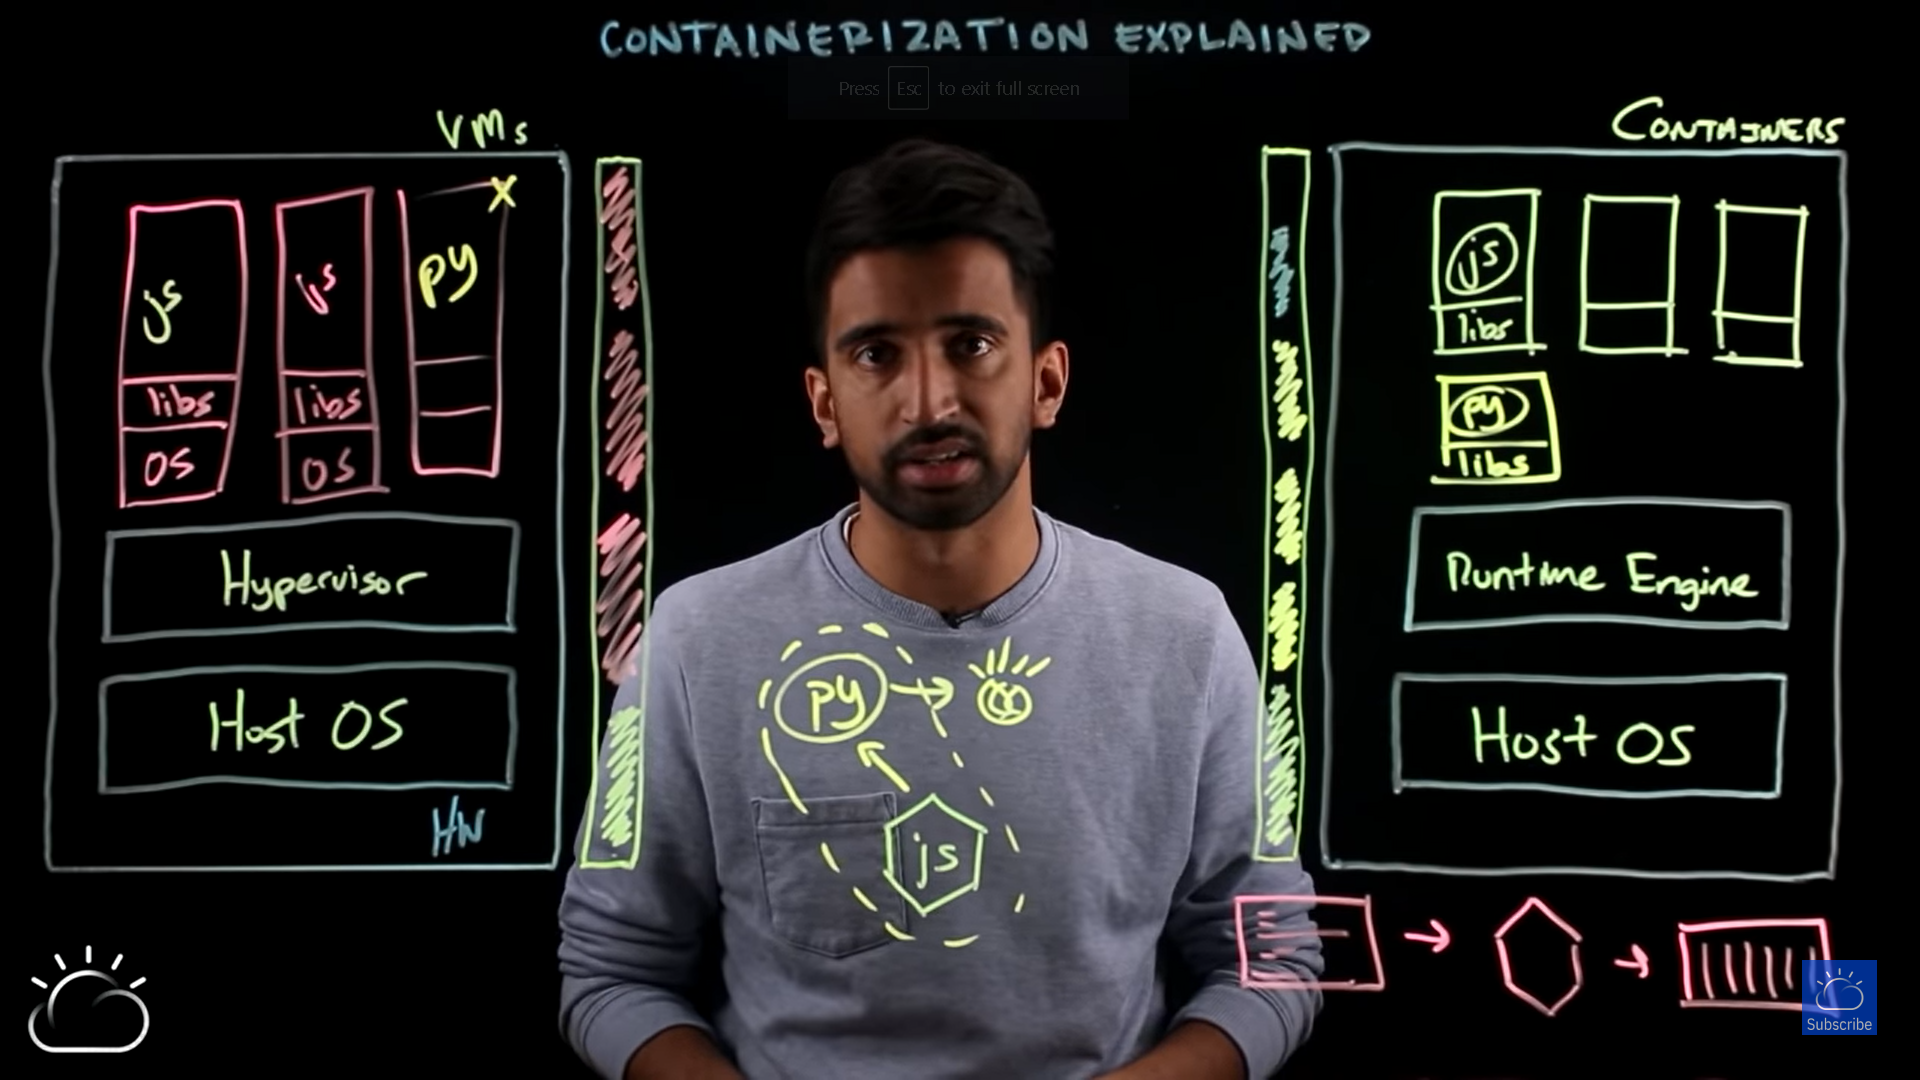 CONTAINERIZATION EXPLAINED
Press Esc to exit full screen
VMs
js
libs
OS
js
libs
OS
x
py
Hypervisor
Host OS
HW
py
js
CONTAINERS
js
libs
py
libs
Runtime Engine
Host OS
Subscribe